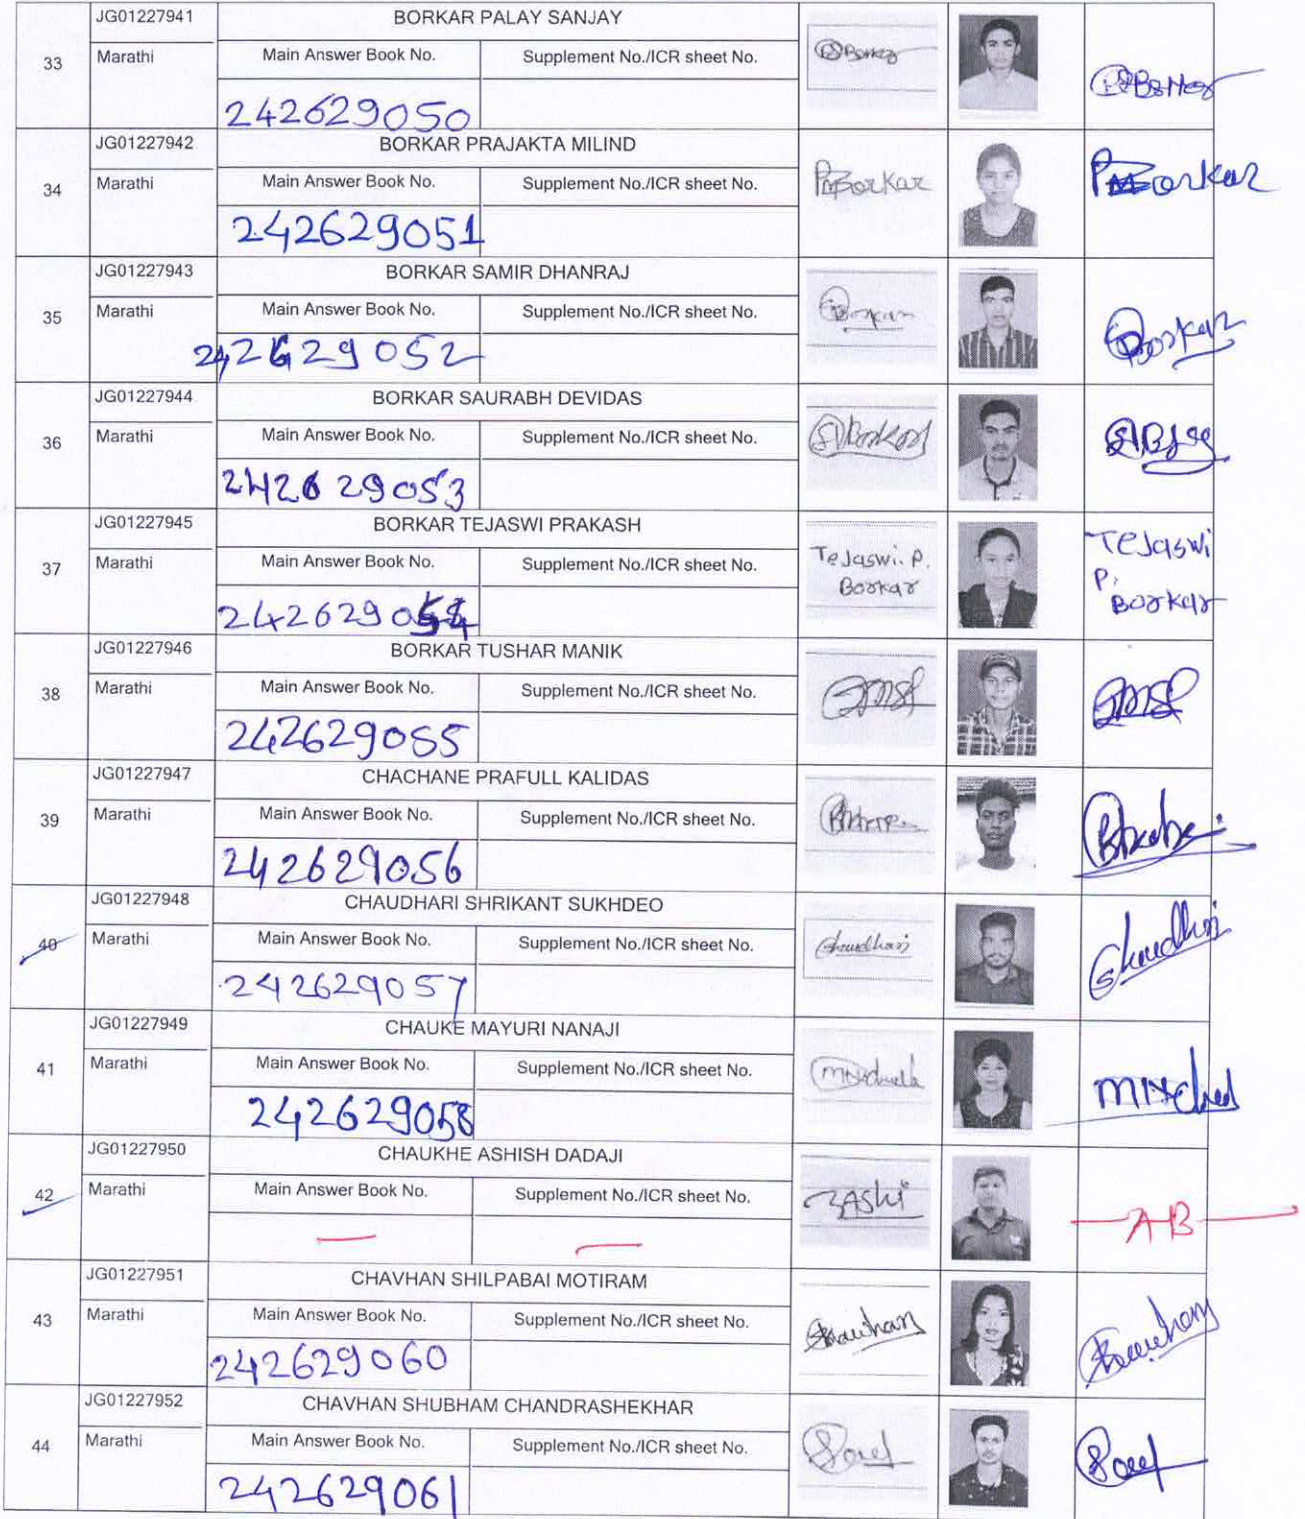 JG01227941 BORKAR PALAY SANJAY
33 Marathi Main Answer Book No. Supplement No./ICR sheet No.
242629050
JG01227942 BORKAR PRAJAKTA MILIND
34 Marathi Main Answer Book No. Supplement No./ICR sheet No.
PMBorkar PMBorkar
242629051
JG01227943 BORKAR SAMIR DHANRAJ
35 Marathi Main Answer Book No. Supplement No./ICR sheet No.
Borkar
242629052
JG01227944 BORKAR SAURABH DEVIDAS
36 Marathi Main Answer Book No. Supplement No./ICR sheet No.
242629053
JG01227945 BORKAR TEJASWI PRAKASH
37 Marathi Main Answer Book No. Supplement No./ICR sheet No.
Tejaswi. P. Borkar
Tejaswi P. Borkar
242629054
JG01227946 BORKAR TUSHAR MANIK
38 Marathi Main Answer Book No. Supplement No./ICR sheet No.
242629055
JG01227947 CHACHANE PRAFULL KALIDAS
39 Marathi Main Answer Book No. Supplement No./ICR sheet No.
242629056
JG01227948 CHAUDHARI SHRIKANT SUKHDEO
40 Marathi Main Answer Book No. Supplement No./ICR sheet No.
242629057
JG01227949 CHAUKE MAYURI NANAJI
41 Marathi Main Answer Book No. Supplement No./ICR sheet No.
242629058
JG01227950 CHAUKHE ASHISH DADAJI
42 Marathi Main Answer Book No. Supplement No./ICR sheet No.
— — AB
JG01227951 CHAVHAN SHILPABAI MOTIRAM
43 Marathi Main Answer Book No. Supplement No./ICR sheet No.
242629060
JG01227952 CHAVHAN SHUBHAM CHANDRASHEKHAR
44 Marathi Main Answer Book No. Supplement No./ICR sheet No.
242629061